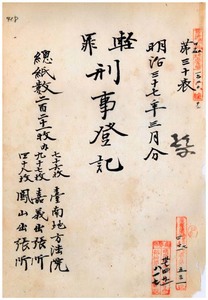 第三十表
明治三十七年三月分
輕罪
刑事登記
總紙数二百二十一枚内
七十六枚 臺南地方法院
九十七枚 嘉義出張所
四十八枚 鳳山出張所